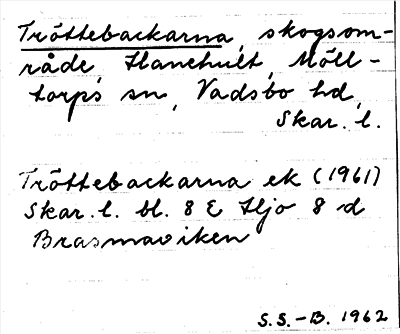 Tröttebackarna, skogsom-
råde, Hanehult, Möll-
torps sn, Vadsbo hd,
Skar. l.
Tröttebackarna ek (1961)
Skar. l. bl. 8 E Hjo 8 d
Brasmaviken
S.S.-B. 1962